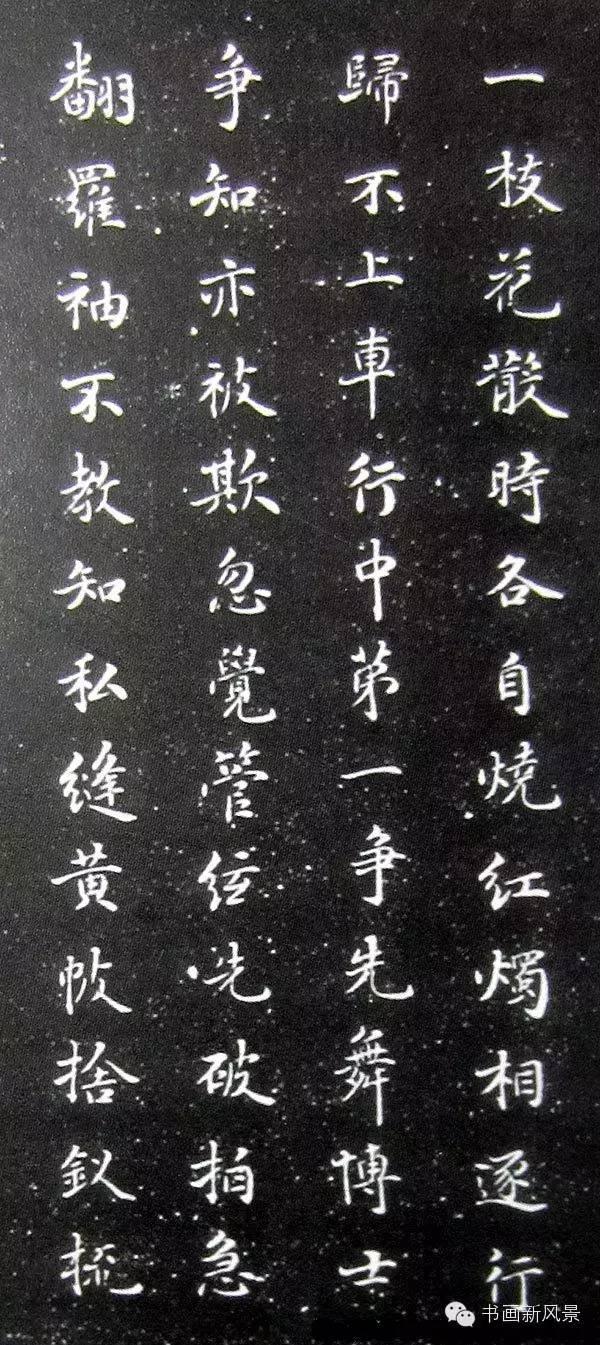 一枝花散時各自燒紅燭相逐行
歸不上車行中第一争先舞博士
争知亦被欺忽覺管絃先破拍急
翻羅袖不教知私縫黄帔捨釵梳
书画新风景